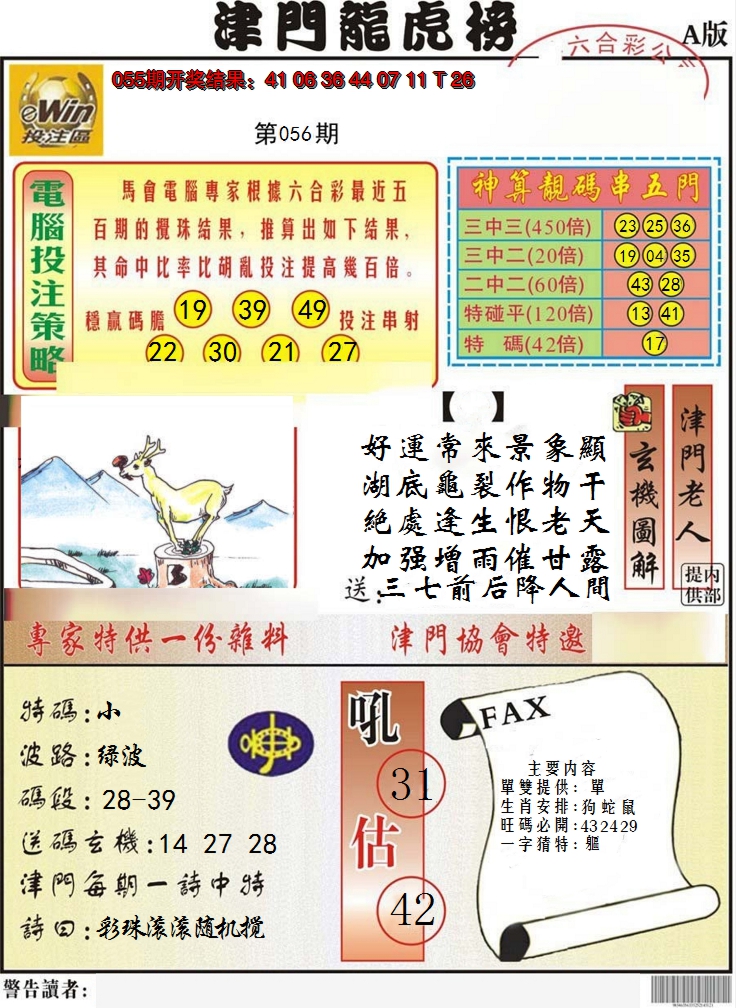 津門龍虎榜
A版
六合彩公
055期开奖结果：41 06 36 44 07 11 T 26
eWin
投注區
第056期
電腦投注策略
馬會電腦專家根據六合彩最近五
百期的攪珠结果，推算出如下结果，
其命中比率比胡亂投注提高幾百倍。
穩贏碼膽 19 39 49 投注串射
22 30 21 27
神算靚碼串五門
三中三(450倍) 23 25 36
三中二(20倍) 19 04 35
二中二(60倍) 43 28
特碰平(120倍) 13 41
特 碼(42倍) 17
【 】
好運常來景象顯
湖底龜裂作物干
絶處逢生恨老天
加强增雨催甘露
送：三七前后降人間
玄機圖解
津門老人
内部提供
專家特供一份雜料
津門協會特邀
特碼：小
波路：绿波
碼段：28-39
送碼玄機：14 27 28
津門每期一詩中特
詩曰：彩珠滚滚随机搅
吼
31
估
42
FAX
主要内容
單雙提供：單
生肖安排：狗蛇鼠
旺碼必開：432429
一字猜特：軀
警告讀者：